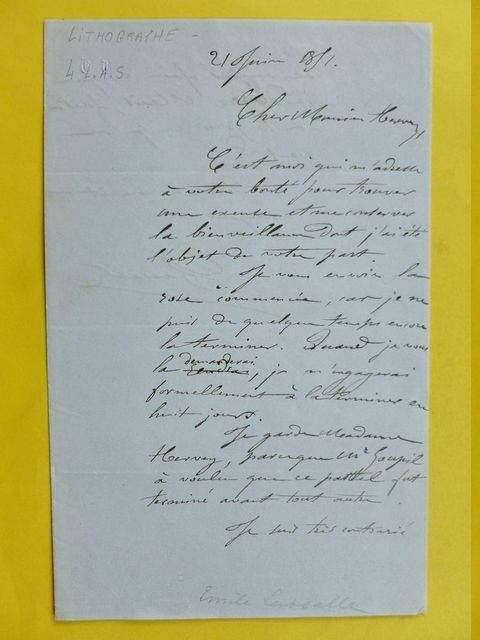 LITHOGRAPHE -
L.A.S
21 Février 1851.
Cher Monsieur Hervey,
C'est moi qui m'adresse
à votre bonté pour trouver
une excuse et me conserver
la bienveillance dont j'ai été
l'objet de votre part.
Je vous envoie la
commencée, car je ne
puis de quelque temps encore
la terminer. Quand je vous
la demanderai, je m'engagerai
formellement à la terminer en
huit jours.
Je garde Madame
Hervey, parceque Mr Goupil
à voulu que ce pastel fut
terminé avant tout autre.
Je suis très contrarié
Emile Lassalle